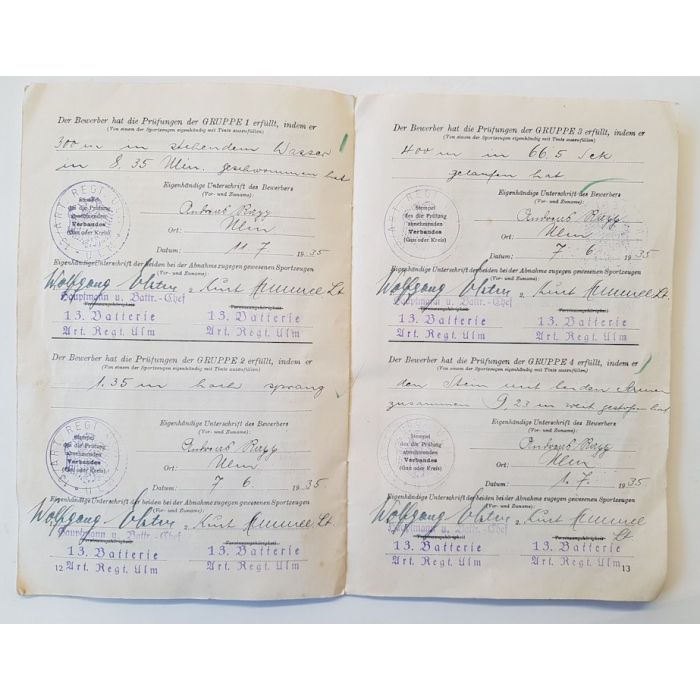 Der Bewerber hat die Prüfungen der GRUPPE 1 erfüllt, indem er
(Von einem der Sportzeugen eigenhändig mit Tinte auszufüllen)
300 m in stehendem Wasser
in 8,35 Min. geschwommen hat
Eigenhändige Unterschrift des Bewerbers
(Vor- und Zuname):
Stempel
des die Prüfung
abnehmenden
Verbandes
(Gau oder Kreis)
Andreas
Ort: Ulm
Datum: 11. 7. 1935
Eigenhändige Unterschrift der beiden bei der Abnahme zugegen gewesenen Sportzeugen
(Vor- und Zuname):
Wolfgang u. Kurt Lt.
Hauptmann u. Battr.-Chef
Vereinszugehörigkeit
13. Batterie 13. Batterie
Art. Regt. Ulm Art. Regt. Ulm
Der Bewerber hat die Prüfungen der GRUPPE 2 erfüllt, indem er
(Von einem der Sportzeugen eigenhändig mit Tinte auszufüllen)
1.35 m hoch sprang
Eigenhändige Unterschrift des Bewerbers
(Vor- und Zuname):
ART. REGT. ULM
Stempel
des die Prüfung
abnehmenden
Verbandes
(Gau oder Kreis)
Andreas
Ort: Ulm
Datum: 7. 6. 1935
Eigenhändige Unterschrift der beiden bei der Abnahme zugegen gewesenen Sportzeugen
(Vor- und Zuname):
Wolfgang u. Kurt Lt.
Hauptmann u. Battr.-Chef
Vereinszugehörigkeit
13. Batterie 13. Batterie
Art. Regt. Ulm Art. Regt. Ulm
12
Der Bewerber hat die Prüfungen der GRUPPE 3 erfüllt, indem er
(Von einem der Sportzeugen eigenhändig mit Tinte auszufüllen)
400 m in 66,5 Sek
gelaufen hat
Eigenhändige Unterschrift des Bewerbers
(Vor- und Zuname):
Stempel
des die Prüfung
abnehmenden
Verbandes
(Gau oder Kreis)
Andreas
Ort: Ulm
Datum: 7. 6. 1935
Eigenhändige Unterschrift der beiden bei der Abnahme zugegen gewesenen Sportzeugen
(Vor- und Zuname):
Wolfgang u. Kurt Lt.
Hauptmann u. Battr.-Chef
Vereinszugehörigkeit
13. Batterie 13. Batterie
Art. Regt. Ulm Art. Regt. Ulm
Der Bewerber hat die Prüfungen der GRUPPE 4 erfüllt, indem er
(Von einem der Sportzeugen eigenhändig mit Tinte auszufüllen)
den Stein mit beiden Armen
zusammen 9,23 m weit gestoßen hat
Eigenhändige Unterschrift des Bewerbers
(Vor- und Zuname):
Stempel
des die Prüfung
abnehmenden
Verbandes
(Gau oder Kreis)
Andreas
Ort: Ulm
Datum: 1. 7. 1935
Eigenhändige Unterschrift der beiden bei der Abnahme zugegen gewesenen Sportzeugen
(Vor- und Zuname):
Wolfgang u. Kurt
Lt.
Hauptmann u. Battr.-Chef
Vereinszugehörigkeit
13. Batterie 13. Batterie
Art. Regt. Ulm Art. Regt. Ulm
13